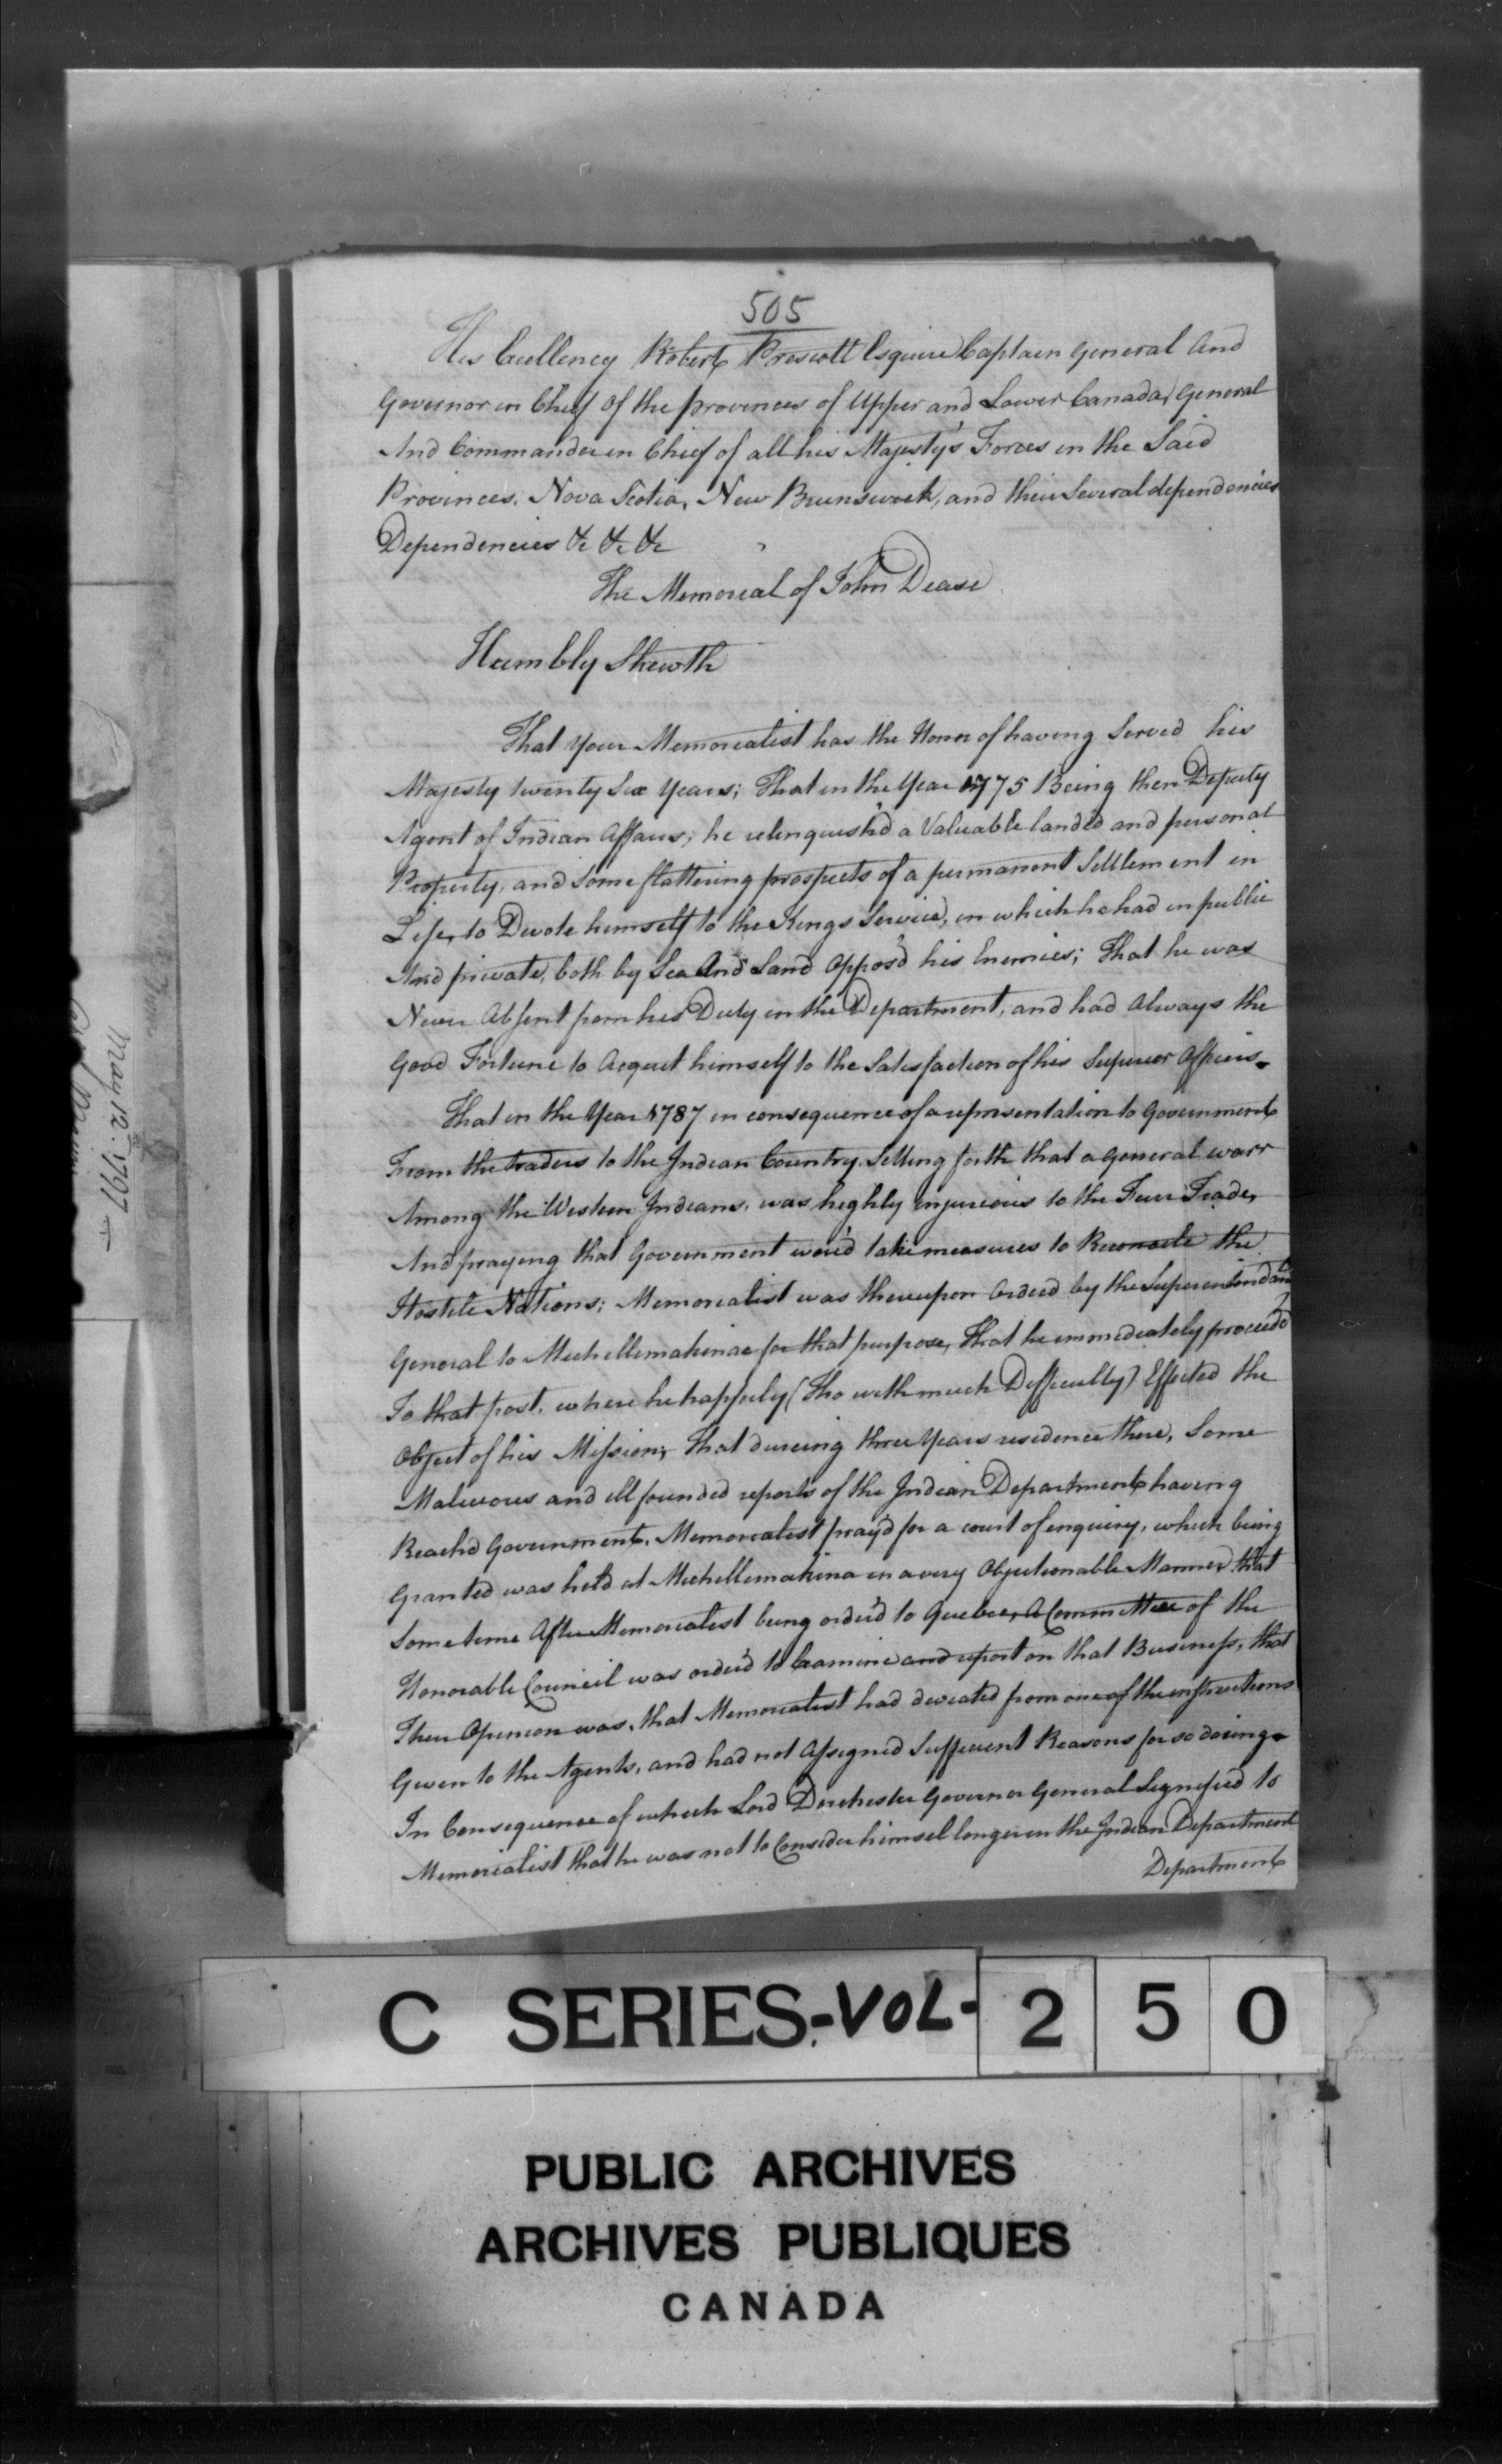 505
His Excellency Robert Prescott Esquire Captain General And
Governor in Chief of the provinces of Upper and Lower Canada, General
And Commander in Chief of all his Majesty's Forces in the Said
Provinces. Nova Scotia, New Brunswick, and their Several dependencies
Dependencies &c &c &c
The Memorial of John Dease
Humbly Sheweth
That your Memorialist has the Honor of having Served his
Majesty twenty Six Years; That in the Year 1775 Being then Deputy
Agent of Indian Affairs; he relinquish'd a Valuable landed and personal
Property, and Some flattering prospects of a permanent Settlement in
Life, to Devote himself to the Kings Service, in which he had in public
And private, both by Sea And Land Oppos'd his Enemies; That he was
Never Absent from his Duty in the Department, and had Always the
Good Fortune to Acquit himself to the Satisfaction of his Superior Officers.
That in the Year 1787 in consequence of a representation to Government
From the traders to the Indian Country. Setting forth that a General warr
Among the Western Indians, was highly injurious to the Furr Trade,
And praying that Government wou'd take measures to Reconcile the
Hostile Nations; Memorialist was thereupon Orderd by the Superintendant
General to Michellemakinac for that purpose, That he immediately proceeded
To that post, where he happily (Tho with much Difficulty) Effected the
Object of his Mission; That dureing three Years residence there, Some
Malicious and ill founded reports of the Indian Department having
Reach'd Government. Memorialist pray'd for a court of enquiry, which being
Granted was held at Michellemakina in a very Objectionable Manner that
Some time After Memorialist being order'd to Quebec, A Committee of the
Honorable Council was order'd to Examine and report on that Business, that
Their Opinion was, that Memorialist had deviated from one of the instructions
Given to the Agents, and had not Assigned Sufficient Reasons for so doing.
In Consequence of which Lord Dorchester Governor General Signified to
Memorialist that he was not to Consider himself longer in the Indian Department
Department
May 12. 1797
C SERIES-VOL- 2 5 0
PUBLIC ARCHIVES
ARCHIVES PUBLIQUES
CANADA